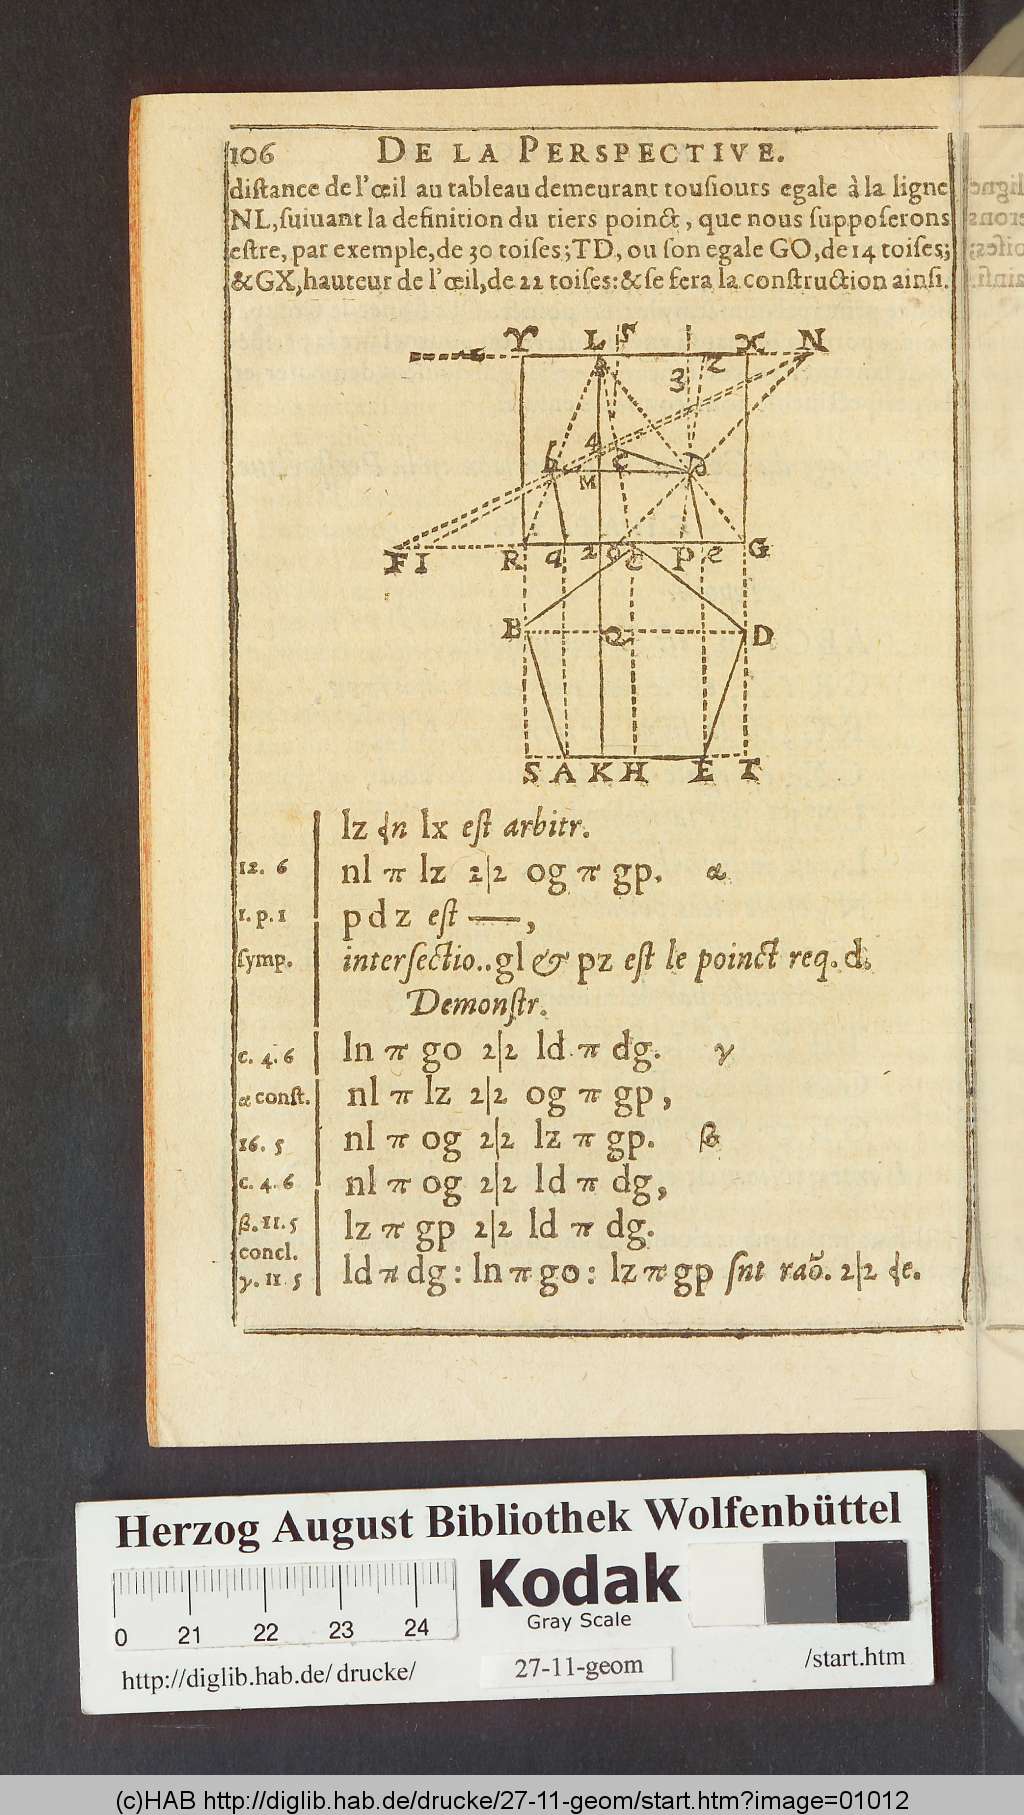 106 DE LA PERSPECTIVE.
distance de l'œil au tableau demeurant tousiours egale à la ligne
NL, suiuant la definition du tiers poinct, que nous supposerons
estre, par exemple, de 30 toises; TD, ou son egale GO, de 14 toises;
& GX, hauteur de l'œil, de 22 toises: & se fera la construction ainsi.
Y L 5 X N
3 2
b 4 c d
M
F I R q 2 9 c p e G
B Q D
S A K H E T
lz ɖn lx est arbitr.
12. 6 nl π lz 2|2 og π gp. α
1. p. 1 pdz est —,
symp. intersectio.. gl & pz est le poinct req. d.
Demonstr.
c. 4. 6 ln π go 2|2 ld π dg. γ
α const. nl π lz 2|2 og π gp,
16. 5 nl π og 2|2 lz π gp. β
c. 4. 6 nl π og 2|2 ld π dg,
β. 11. 5 lz π gp 2|2 ld π dg.
concl.
γ. 11 5 ld π dg : ln π go : lz π gp snt raõ. 2|2 ɖe.
Herzog August Bibliothek Wolfenbüttel
Kodak
Gray Scale
0 21 22 23 24
http://diglib.hab.de/drucke/ 27-11-geom /start.htm
(c)HAB http://diglib.hab.de/drucke/27-11-geom/start.htm?image=01012